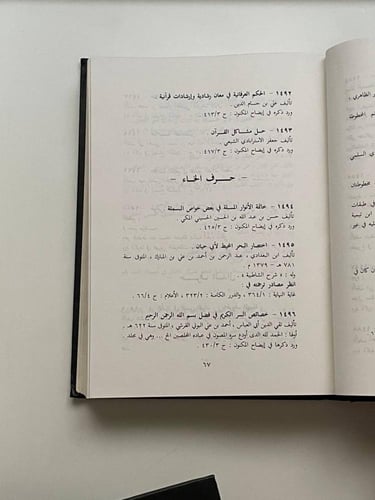 ١٤٩٢ – الحكم العرفانية في معان رشادية وإرشادات قرآنية
تأليف علي بن حسام الدين .
ورد ذكره في إيضاح المكنون : ج ٤١٣/٣
١٤٩٣ – حـل مشـاكل القـرآن
تأليف جعفر الاسترابادي الشيعي
ورد ذكره في إيضاح المكنون : ج ٤١٧/٣
– حــرف الخــاء –
١٤٩٤ – خالة الأنوار المسبلة في بعض خواص البسملة
تأليف حسن بن عبد الله بن الحسين الحسيني المكي
ورد ذكره في إيضاح المكنون : ج ٤٢٥/٣
١٤٩٥ – اختصار البحر المحيط لأبي حيان .
تأليف ابن البغدادي ، عبد الرحمن بن أحمد بن علي بن المبارك ، المتوفى سنة
٧٨١ هـ – ١٣٧٩ م .
وله : ٤ شرح الشاطبية ٤ .
انظر مصادر ترجمته في
غاية النهاية : ٣٦٤/١ ، والدرر الكامنة : ٣٢٣/٢ ، الأعلام : ج ٦٦/٤ .
١٤٩٦ – خصائص السر الكريم في فضل بسم الله الرحمن الرحيم
تأليف تقي الدين أبي العباس ، أحمد بن علي البوني القرشي ، المتوفى سنة ٦٢٢ هـ ،
أولها : الحمد لله الذي أودع سره المصون في عباده المخلصين الخ ... وهي في مجلد .
ورد ذكرها في إيضاح المكنون : ج ٤٣٠/٣ .
٦٧